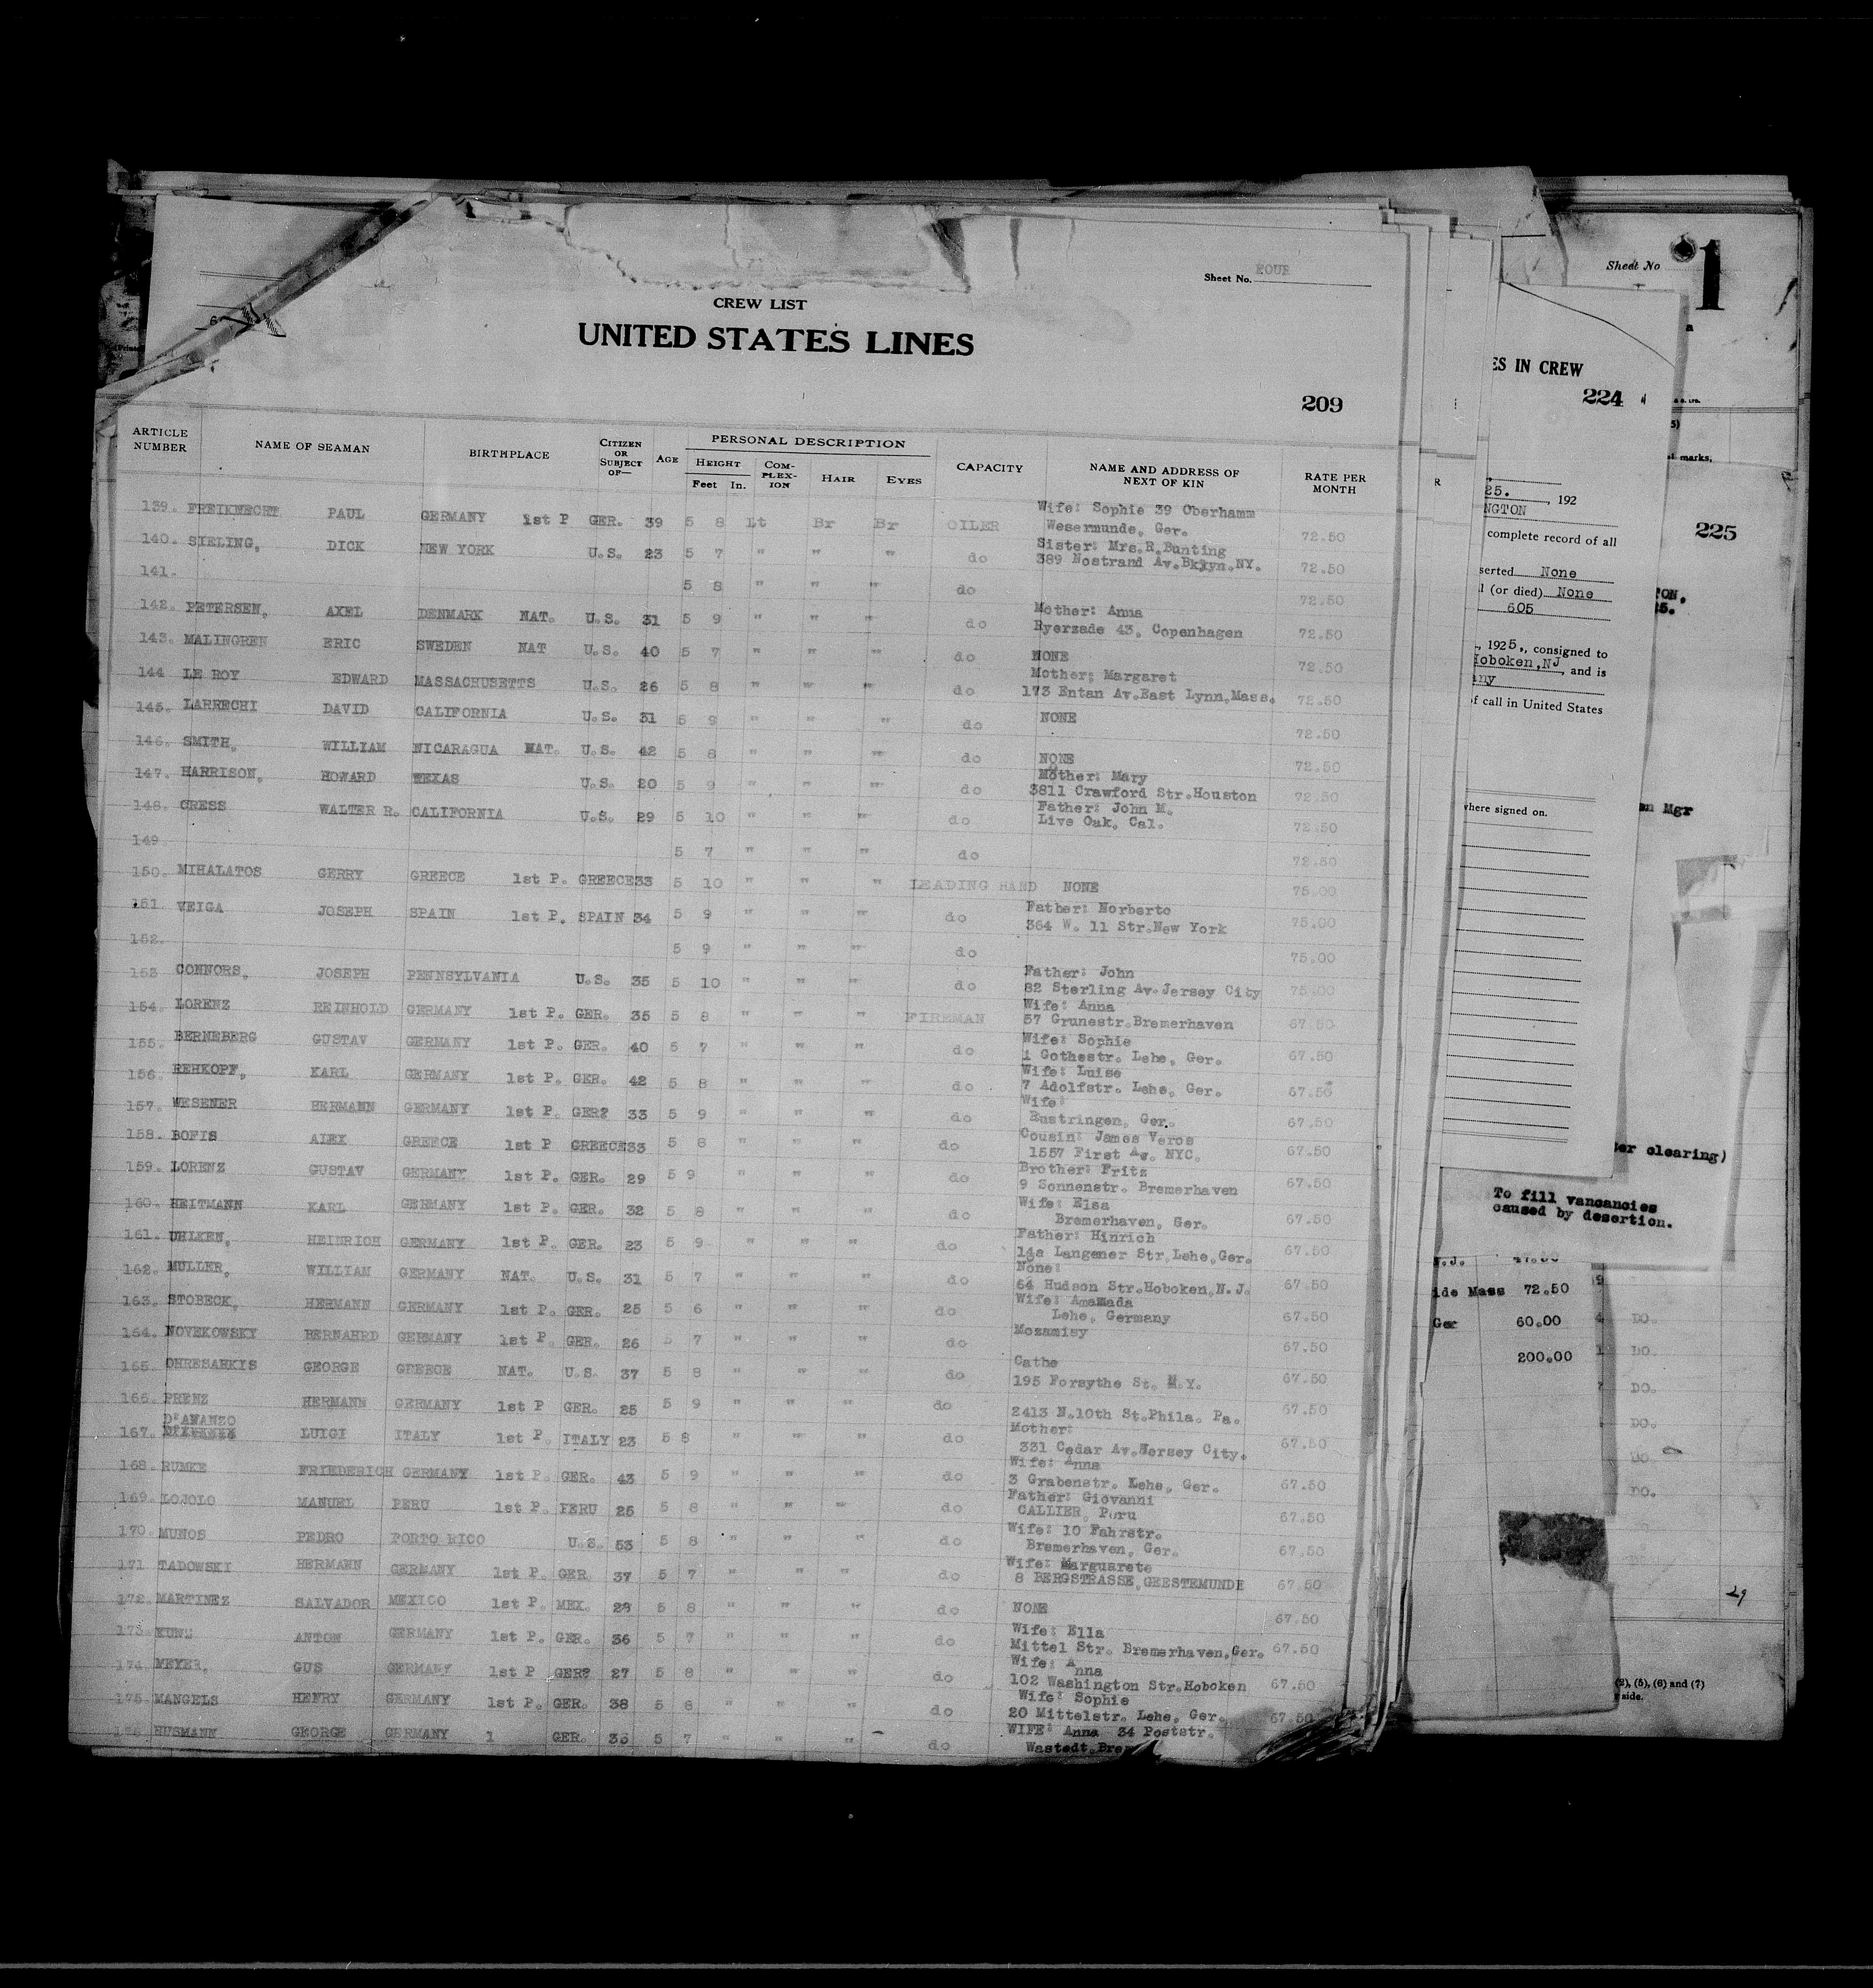 Sheet No. FOUR
CREW LIST
UNITED STATES LINES
209
ARTICLE NUMBER NAME OF SEAMAN BIRTHPLACE CITIZEN OR SUBJECT OF— AGE PERSONAL DESCRIPTION HEIGHT Feet In. COM-PLEX-ION HAIR EYES CAPACITY NAME AND ADDRESS OF NEXT OF KIN RATE PER MONTH
139. FREIKNECHT PAUL GERMANY 1st P GER. 39 5 8 Lt Br Br OILER Wife: Sophie 39 Oberhamm Wesermunde, Ger. 72.50
140. SIELING, DICK NEW YORK U.S. 23 5 7 " " " do Sister: Mrs.R.Bunting 389 Nostrand Av.Bklyn.NY. 72.50
141. 5 8 " " " do 72.50
142. PETERSEN, AXEL DENMARK NAT. U.S. 31 5 9 " " " do Mother: Anna Ryerzade 43, Copenhagen 72.50
143. MALINGREN ERIC SWEDEN NAT U.S. 40 5 7 " " " do NONE 72.50
144 LE ROY EDWARD MASSACHUSETTS U.S. 26 5 8 " " " do Mother; Margaret 173 Entan Av.East Lynn,Mass. 72.50
145. LARRECHI DAVID CALIFORNIA U.S. 31 5 9 " " " do NONE 72.50
146. SMITH, WILLIAM NICARAGUA NAT. U.S. 42 5 8 " " " do NONE 72.50
147. HARRISON, HOWARD TEXAS U.S. 20 5 9 " " " do Mother: Mary 3811 Crawford Str.Houston 72.50
148. CRESS WALTER R. CALIFORNIA U.S. 29 5 10 " " " do Father: John M. Live Oak, Cal. 72.50
149. 5 7 " " " do 72.50
150. MIHALATOS GERRY GREECE 1st P. GREECE 33 5 10 " " " LEADING HAND NONE 75.00
151 VEIGA JOSEPH SPAIN 1st P. SPAIN 34 5 9 " " " do Father: Norberto 364 W. 11 Str.New York 75.00
152. 5 9 " " " do 75.00
153 CONNORS, JOSEPH PENNSYLVANIA U.S. 35 5 10 " " " do Father: John 82 Sterling Av.Jersey City 75.00
154. LORENZ REINHOLD GERMANY 1st P. GER. 35 5 8 " " " FIREMAN Wife: Anna 57 Grunestr.Bremerhaven 67.50
155. BERNEBERG GUSTAV GERMANY 1st P. GER. 40 5 7 " " " do Wife: Sophie 1 Gothestr. Lehe, Ger. 67.50
156. REHKOPF, KARL GERMANY 1st P. GER. 42 5 8 " " " do Wife: Luise 7 Adolfstr. Lehe, Ger. 67.50
157. WESENER HERMANN GERMANY 1st P. GER? 33 5 9 " " " do Wife: Rustringen, Ger. 67.50
158. BOFIS ALEX GREECE 1st P GREECE 33 5 8 " " " do Cousin: James Veros 1557 First Av. NYC. 67.50
159. LORENZ GUSTAV GERMANY 1st P. GER. 29 5 9 " " " do Brother: Fritz 9 Sonnenstr. Bremerhaven 67.50
160. HEITMANN KARL GERMANY 1st P. GER. 32 5 8 " " " do Wife: Elsa Bremerhaven, Ger. 67.50
161. UHLKEN, HEINRICH GERMANY 1st P. GER. 23 5 9 " " " do Father: Hinrich 14a Langener Str,Lehe,Ger. 67.50
162. MULLER, WILLIAM GERMANY NAT. U.S. 31 5 7 " " " do None: 64 Hudson Str.Hoboken,N.J. 67.50
163. STOBECK, HERMANN GERMANY 1st P. GER. 25 5 6 " " " do Wife: Amamada Lehe, Germany 67.50
164. NOVEKOWSKY BERNAHRD GERMANY 1st P. GER. 26 5 7 " " " do Mozamisy 67.50
165. OHRESARKIS GEORGE GREECE NAT. U.S. 37 5 8 " " " do Cathe 195 Forsythe St. N.Y. 67.50
166. PRENZ HERMANN GERMANY 1st P GER. 25 5 9 " " " do 2413 N.10th St.Phila. Pa. 67.50
167. D'ANANZO LUIGI ITALY 1st P. ITALY 23 5 8 " " " do Mother: 331 Cedar Av.Hersey City. 67.50
168. RUMKE FRIEDERICH GERMANY 1st P. GER. 43 5 9 " " " do Wife: Anna 3 Grabenstr. Lehe, Ger. 67.50
169. LOJOLO MANUEL PERU 1st P. PERU 25 5 8 " " " do Father: Giovanni CALLIER, Puru 67.50
170. MUNOS PEDRO PORTO RICO U.S. 53 5 8 " " " do Wife: 10 Fahrstr. Bremerhaven, Ger. 67.50
171 TADOWSKI HERMANN GERMANY 1st P. GER 37 5 7 " " " do Wife: Marguarete 8 BERGSTRASSE,GEESTEMUNDE 67.50
172. MARTINEZ SALVADOR MEXICO 1st P. MEX. 29 5 8 " " " do NONE 67.50
173. KUNZ ANTON GERMANY 1st P. GER. 36 5 7 " " " do Wife: Ella Mittel Str. Bremerhaven,Ger. 67.50
174. MEYER, GUS GERMANY 1st P GER? 27 5 8 " " " do Wife: Anna 102 Washington Str.Hoboken 67.50
175. MANGELS HENRY GERMANY 1st P. GER. 38 5 8 " " " do Wife: Sophie 20 Mittelstr. Lehe, Ger. 67.50
176 HUSMANN GEORGE GERMANY 1 GER. 36 5 7 " " " do WIFE: Anna 34 Poststr. Wastedt,Bre
R
ES IN CREW
224
25. , 192
NGTON
complete record of all
serted None
l (or died) None
605
, 1925, consigned to
Hoboken,NJ, and is
any
of call in United States
where signed on.
Sheet No 1
a
5)
marks.
225
TON,
25.
an Mgr
ter clearing)
To fill vancancies
caused by desertion.
N.J. 47.50
ide Mass 72.50
Ger 60.00 DO.
200.00 DO.
DO.
DO.
DO.
DO.
29
(2), (5), (6) and (7)
side.